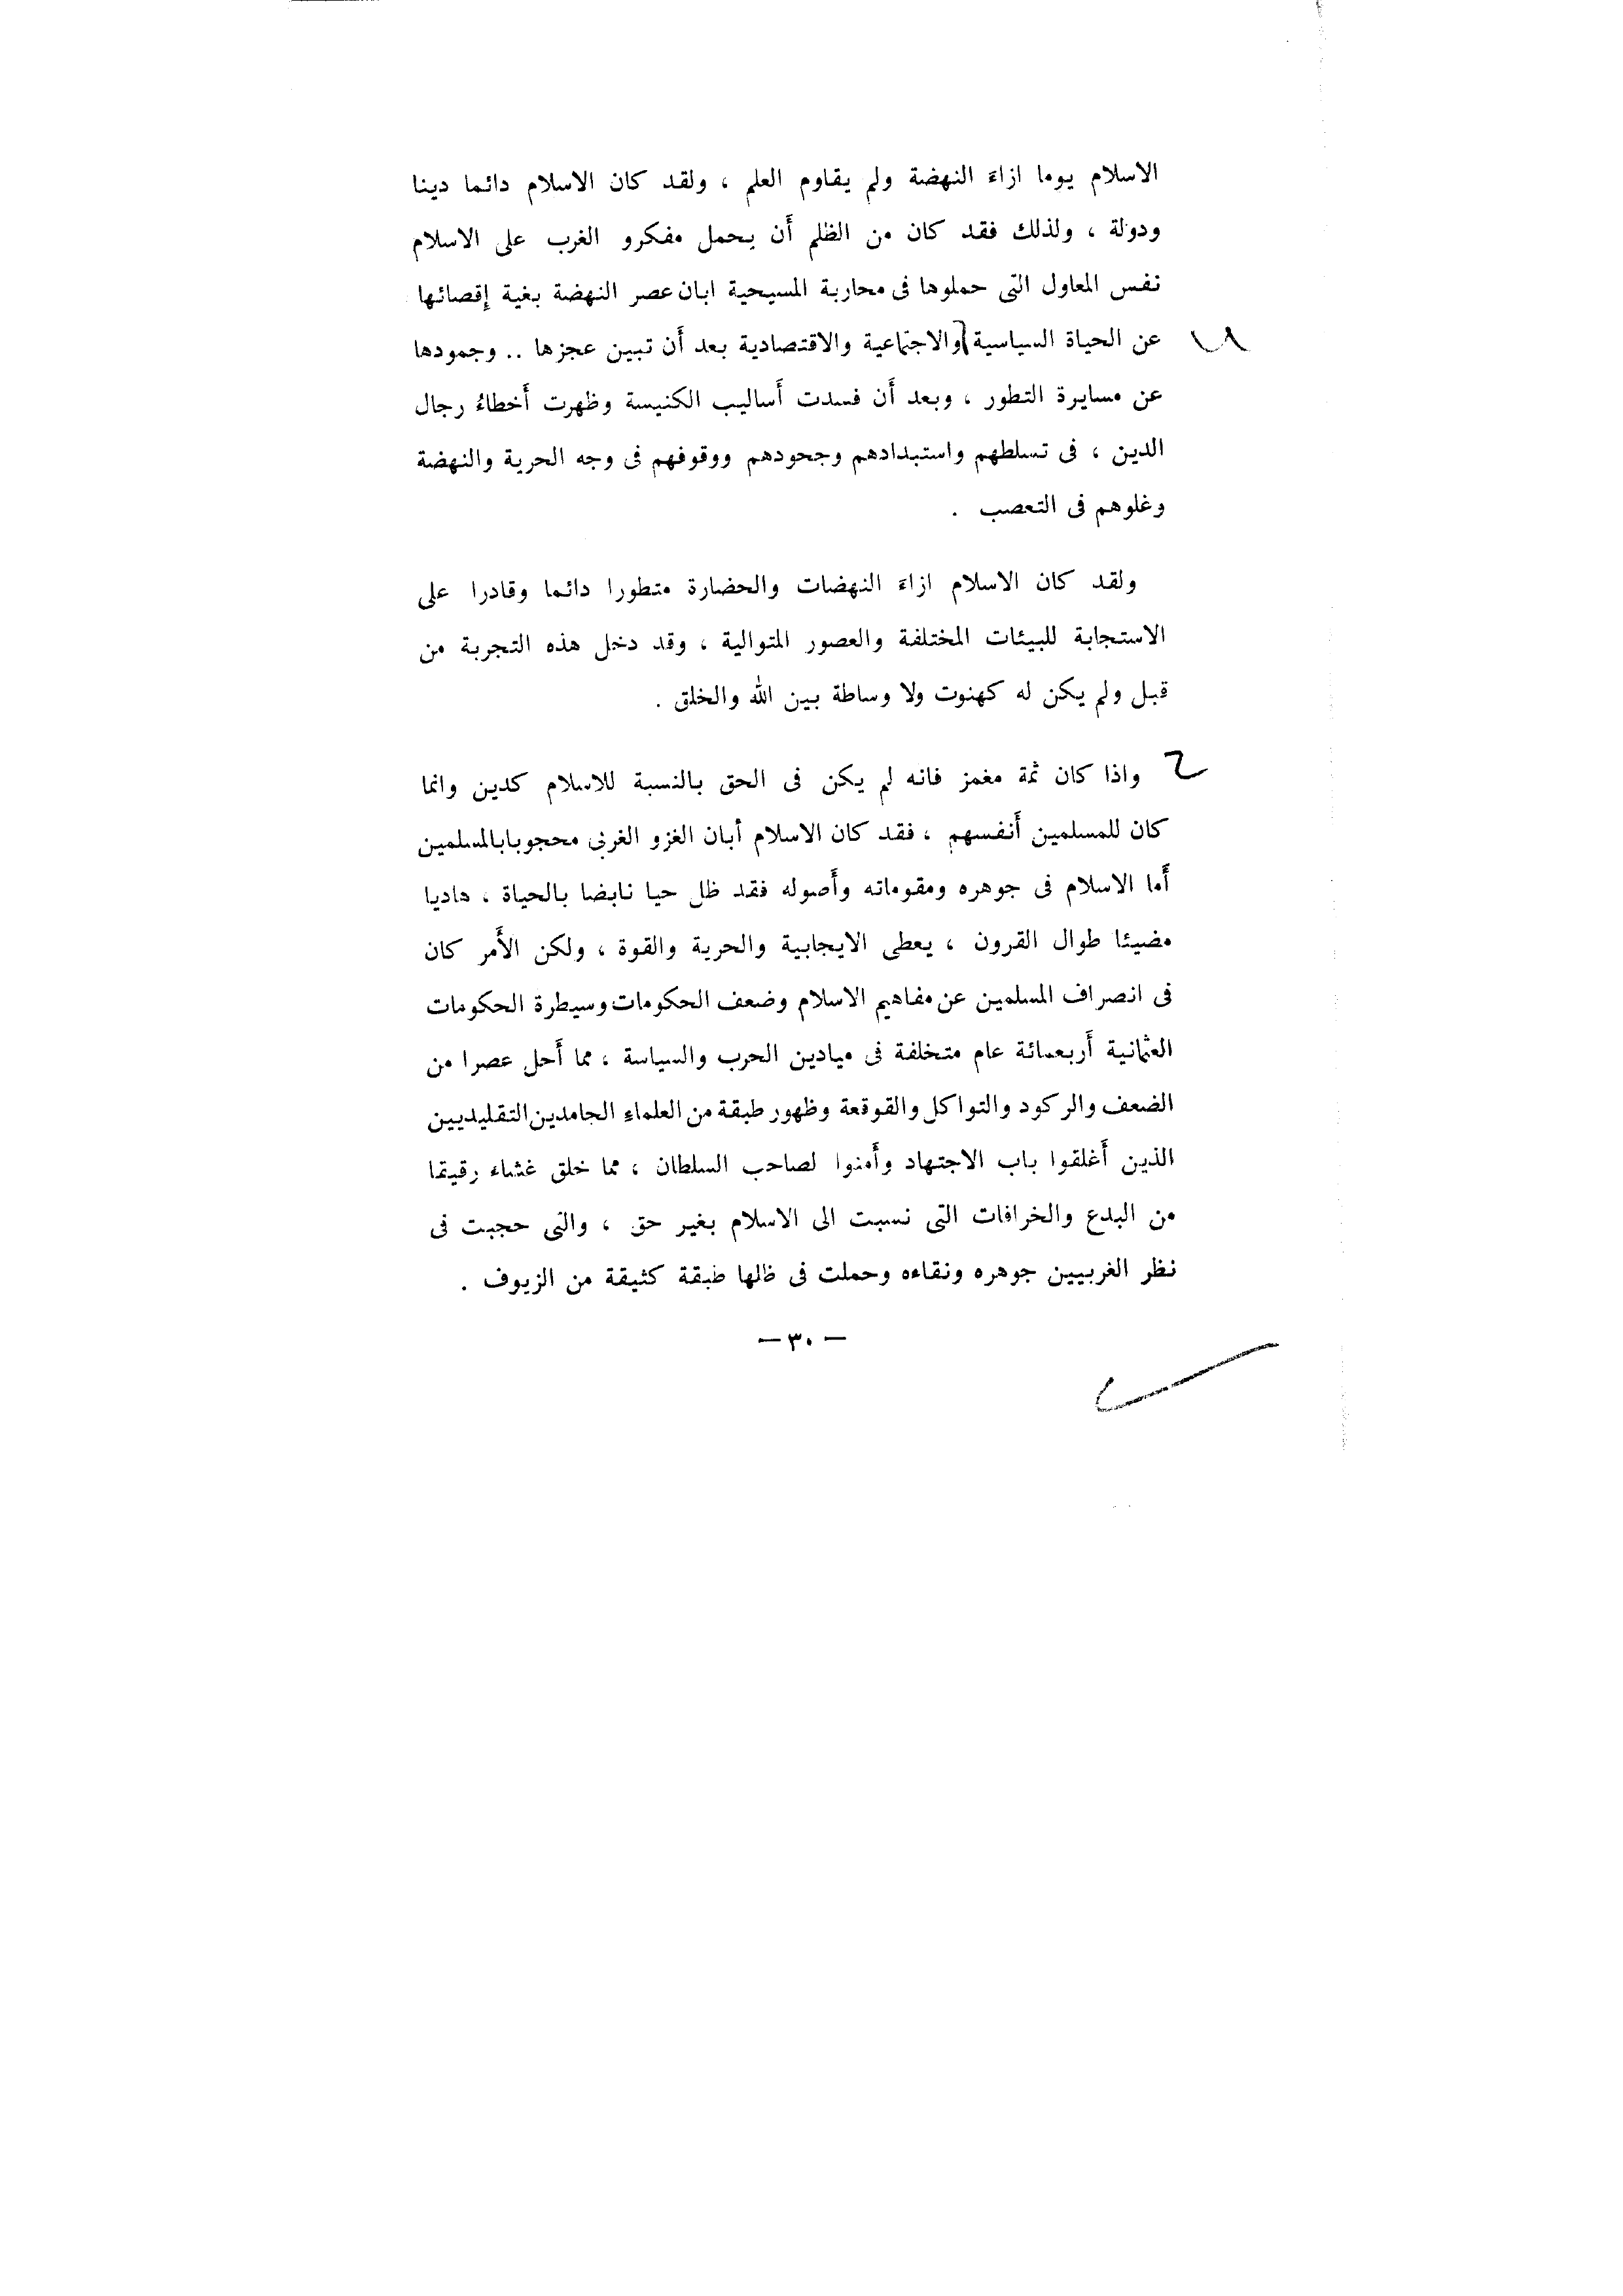 الاسلام يوما ازاء النهضة ولم يقاوم العلم ، ولقد كان الاسلام دائما دينا
ودولة ، ولذلك فقد كان من الظلم أن يحمل مفكرو الغرب على الاسلام
نفس المعاول التى حملوها فى محاربة المسيحية ابان عصر النهضة بغية إقصائها
عن الحياة السياسية والاجتماعية والاقتصادية بعد أن تبين عجزها .. وجمودها
عن مسايرة التطور ، وبعد أن فسدت أساليب الكنيسة وظهرت أخطاء رجال
الدين ، فى تسلطهم واستبدادهم وجحودهم ووقوفهم فى وجه الحرية والنهضة
وغلوهم فى التعصب .
ولقد كان الاسلام ازاء النهضات والحضارة متطورا دائما وقادرا على
الاستجابة للبيئات المختلفة والعصور المتوالية ، وقد دخل هذه التجربة من
قبل ولم يكن له كهنوت ولا وساطة بين الله والخلق .
واذا كان ثمة مغمز فانه لم يكن فى الحق بالنسبة للاسلام كدين وانما
كان للمسلمين أنفسهم ، فقد كان الاسلام أبان الغزو الغربى محجوبابالمسلمين
أما الاسلام فى جوهره ومقوماته وأصوله فقد ظل حيا نابضا بالحياة ، هاديا
مضيئا طوال القرون ، يعطى الايجابية والحرية والقوة ، ولكن الأمر كان
فى انصراف المسلمين عن مفاهيم الاسلام وضعف الحكومات وسيطرة الحكومات
العثمانية أربعمائة عام متخلفة فى ميادين الحرب والسياسة ، مما أحل عصرا من
الضعف والركود والتواكل والقوقعة وظهور طبقة من العلماء الجامدين التقليديين
الذين أغلقوا باب الاجتهاد وأمنوا لصاحب السلطان ، مما خلق غشاء رقيقا
من البدع والخرافات التى نسبت الى الاسلام بغير حق ، والتى حجبت فى
نظر الغربيين جوهره ونقاءه وحملت فى ظلها طبقة كثيقة من الزيوف .
— ٣٠ —